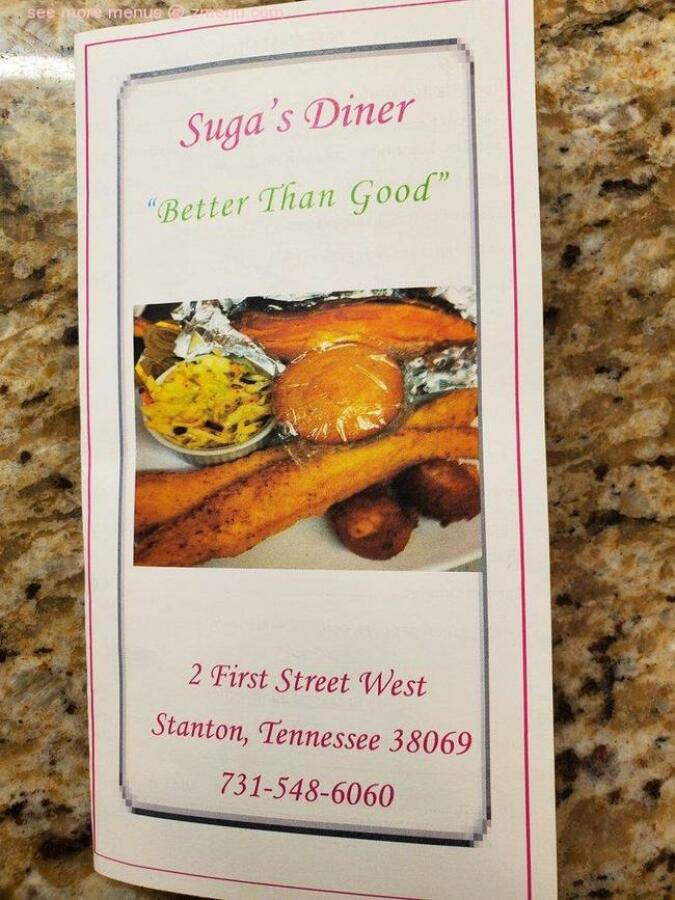 see more menus @ zmenu.com
Suga's Diner
"Better Than Good"
2 First Street West
Stanton, Tennessee 38069
731-548-6060